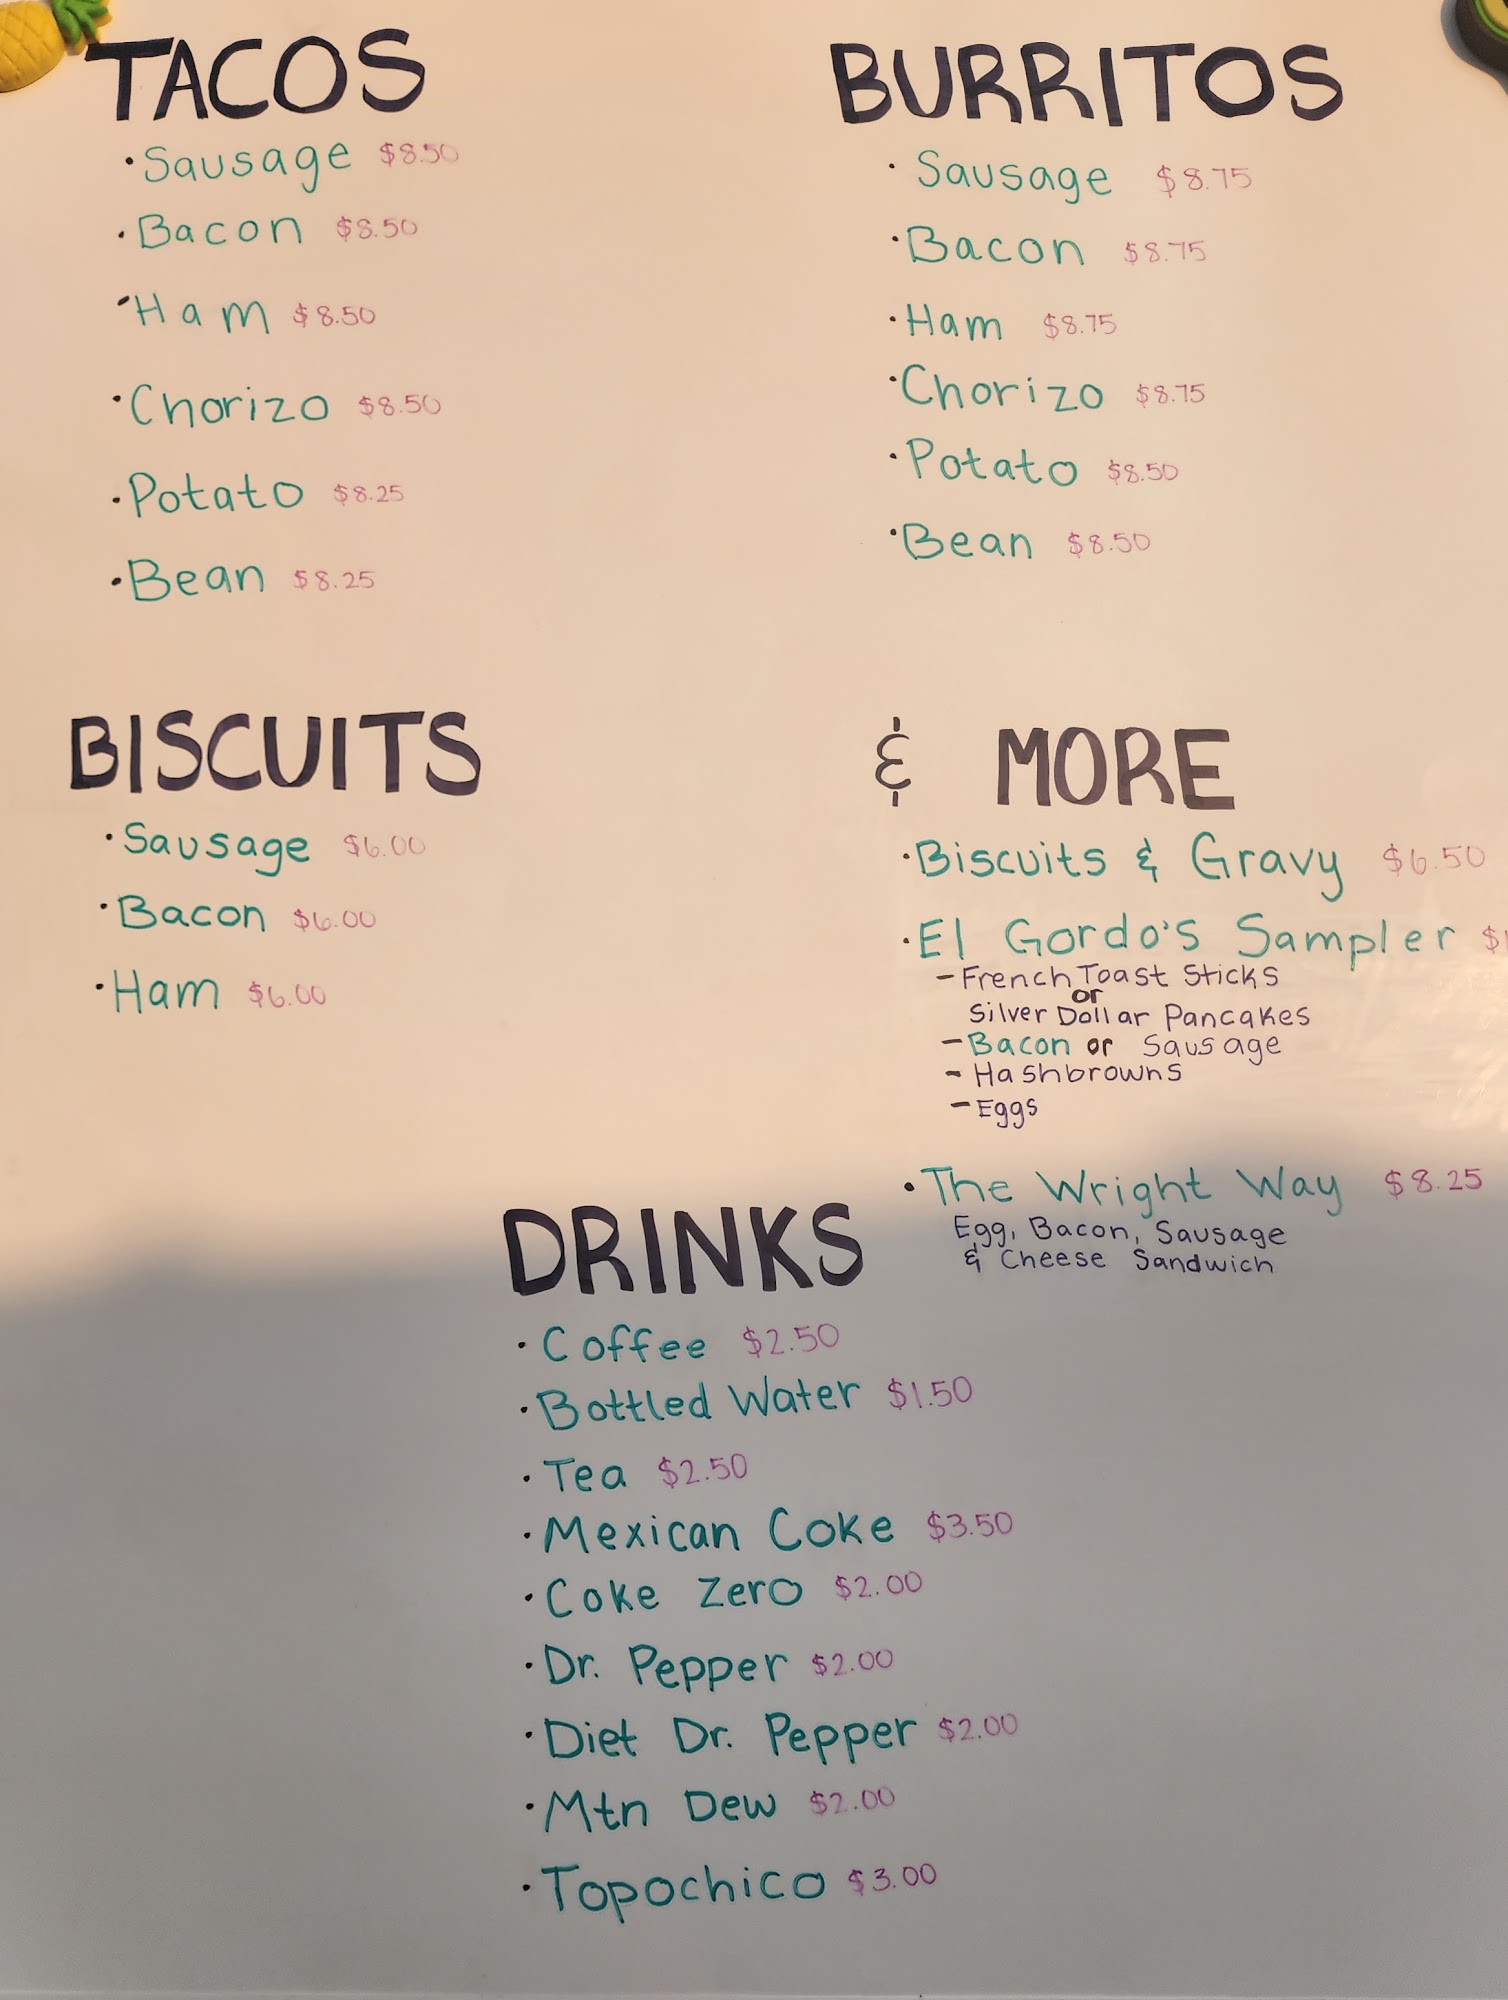 TACOS
• Sausage $8.50
• Bacon $8.50
• Ham $8.50
• Chorizo $8.50
• Potato $8.25
• Bean $8.25
BURRITOS
• Sausage $8.75
• Bacon $8.75
• Ham $8.75
• Chorizo $8.75
• Potato $8.50
• Bean $8.50
BISCUITS
• Sausage $6.00
• Bacon $6.00
• Ham $6.00
& MORE
• Biscuits & Gravy $6.50
• El Gordo's Sampler
- French Toast Sticks
or
Silver Dollar Pancakes
- Bacon or Sausage
- Hashbrowns
- Eggs
• The Wright Way $8.25
Egg, Bacon, Sausage
& Cheese Sandwich
DRINKS
• Coffee $2.50
• Bottled Water $1.50
• Tea $2.50
• Mexican Coke $3.50
• Coke Zero $2.00
• Dr. Pepper $2.00
• Diet Dr. Pepper $2.00
• Mtn Dew $2.00
• Topochico $3.00